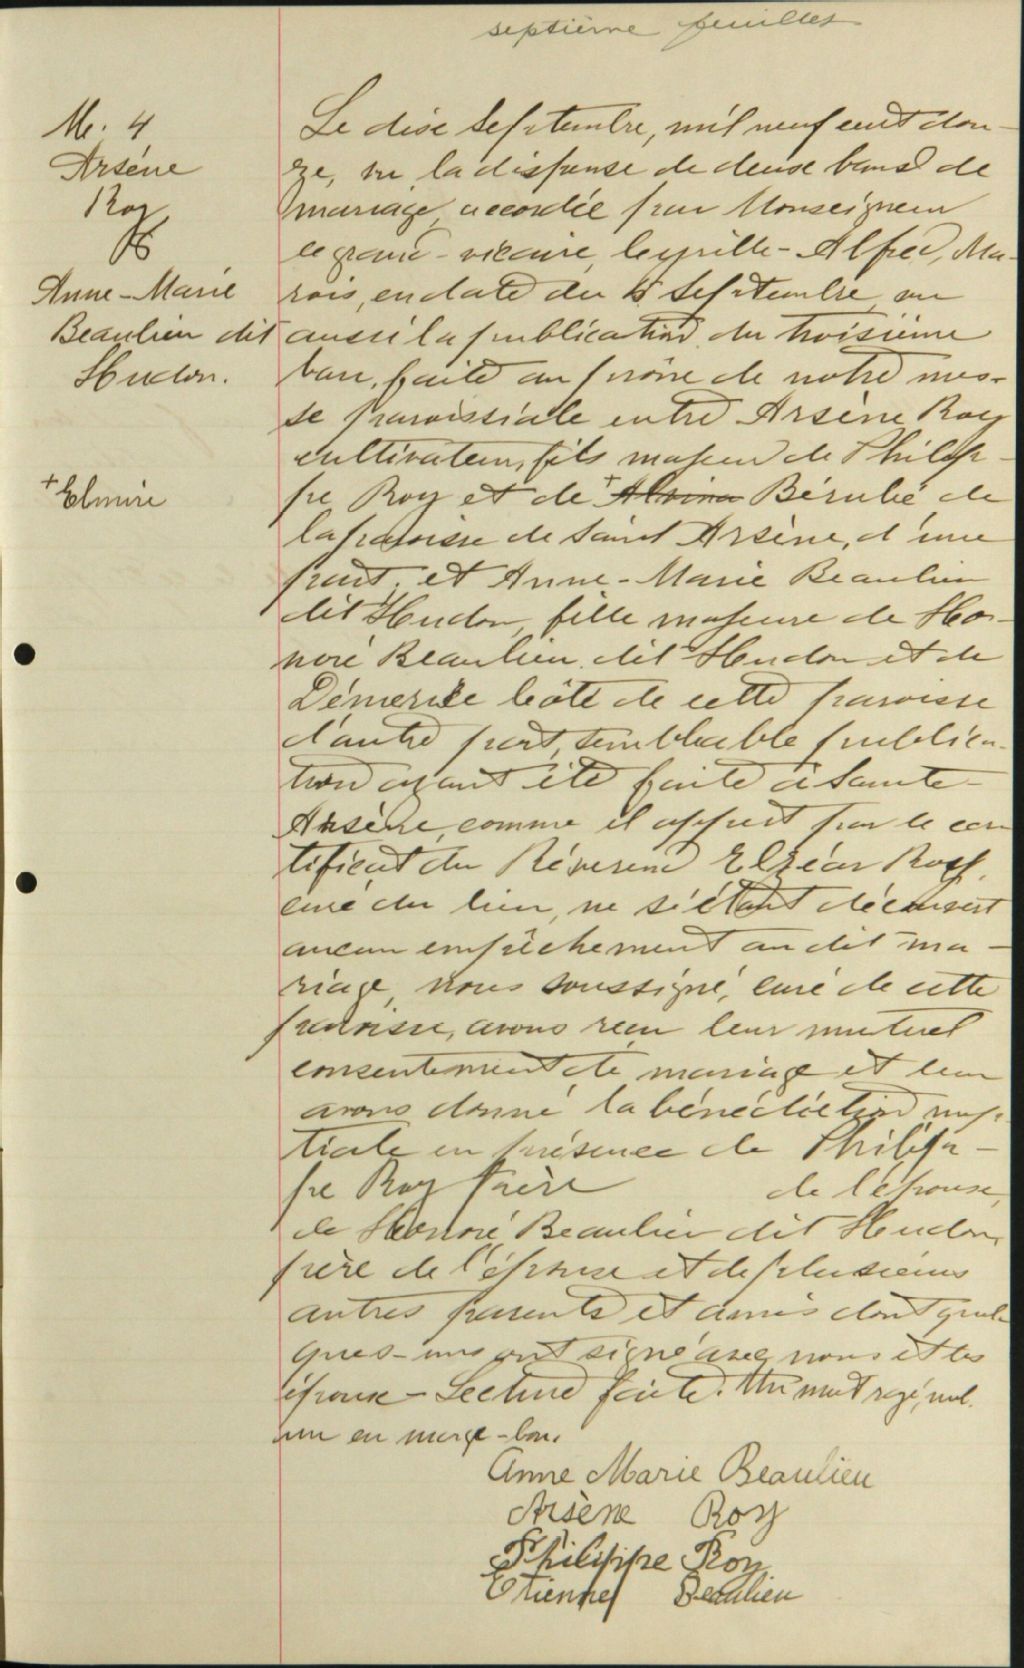 septième feuillet
M. 4
Arsène
Roy
&
Anne-Marie
Beaulieu dit
Hudon.
+Elmire
Le dix Septembre, mil neuf cent dou-
ze, vu la dispense de deux bans de
mariage accordée par Monseigneur
le grand-vicaire, Cyrille-Alfred, Ma-
rois, en date du 5 Septembre vu
aussi la publication du troisième
ban, faite au prône de notre mes-
se paroissiale entre Arsène Roy
cultivateur, fils majeur de Philip-
pe Roy et de + Alvina Bérubé de
la paroisse de Saint Arsène, d'une
part, et Anne-Marie Beaulieu
dit Hudon, fille majeure de Ho-
noré Beaulieu dit Hudon et de
Démerise Côté de cette paroisse
d'autre part, semblable publica-
tion ayant été faite à Sainte-
Arsène, comme il appert par le cer
tificat du Révérend Elzéar Roy,
curé du lieu, ne s'étant découvert
aucun empêchement au dit ma-
riage, nous soussigné, curé de cette
paroisse, avons reçu leur mutuel
consentement de mariage et leur
avons donné la bénédiction nup-
tiale en présence de Philip-
pe Roy frère de l'épouse,
de Honoré Beaulieu dit Hudon,
père de l'épouse et de plusieurs
autres parents et amis dont quel-
ques-uns ont signé avec nous et les
époux - Lecture faite. Un mot rayé, nul.
un en marge - bon.
Anne Marie Beaulieu
Arsène Roy
Philippe Roy
Etienne Beaulieu